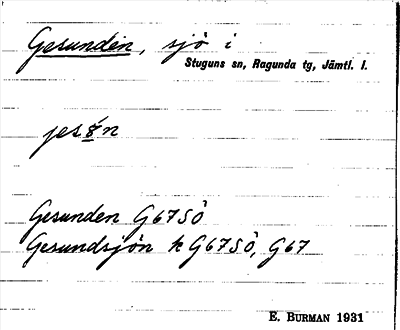 Gesunden, sjö i
Stuguns sn, Ragunda tg, Jämtl. l.
jes8́n
Gesunden G67SÖ
Gesundsjön k G67SÖ, G67
E. BURMAN 1931